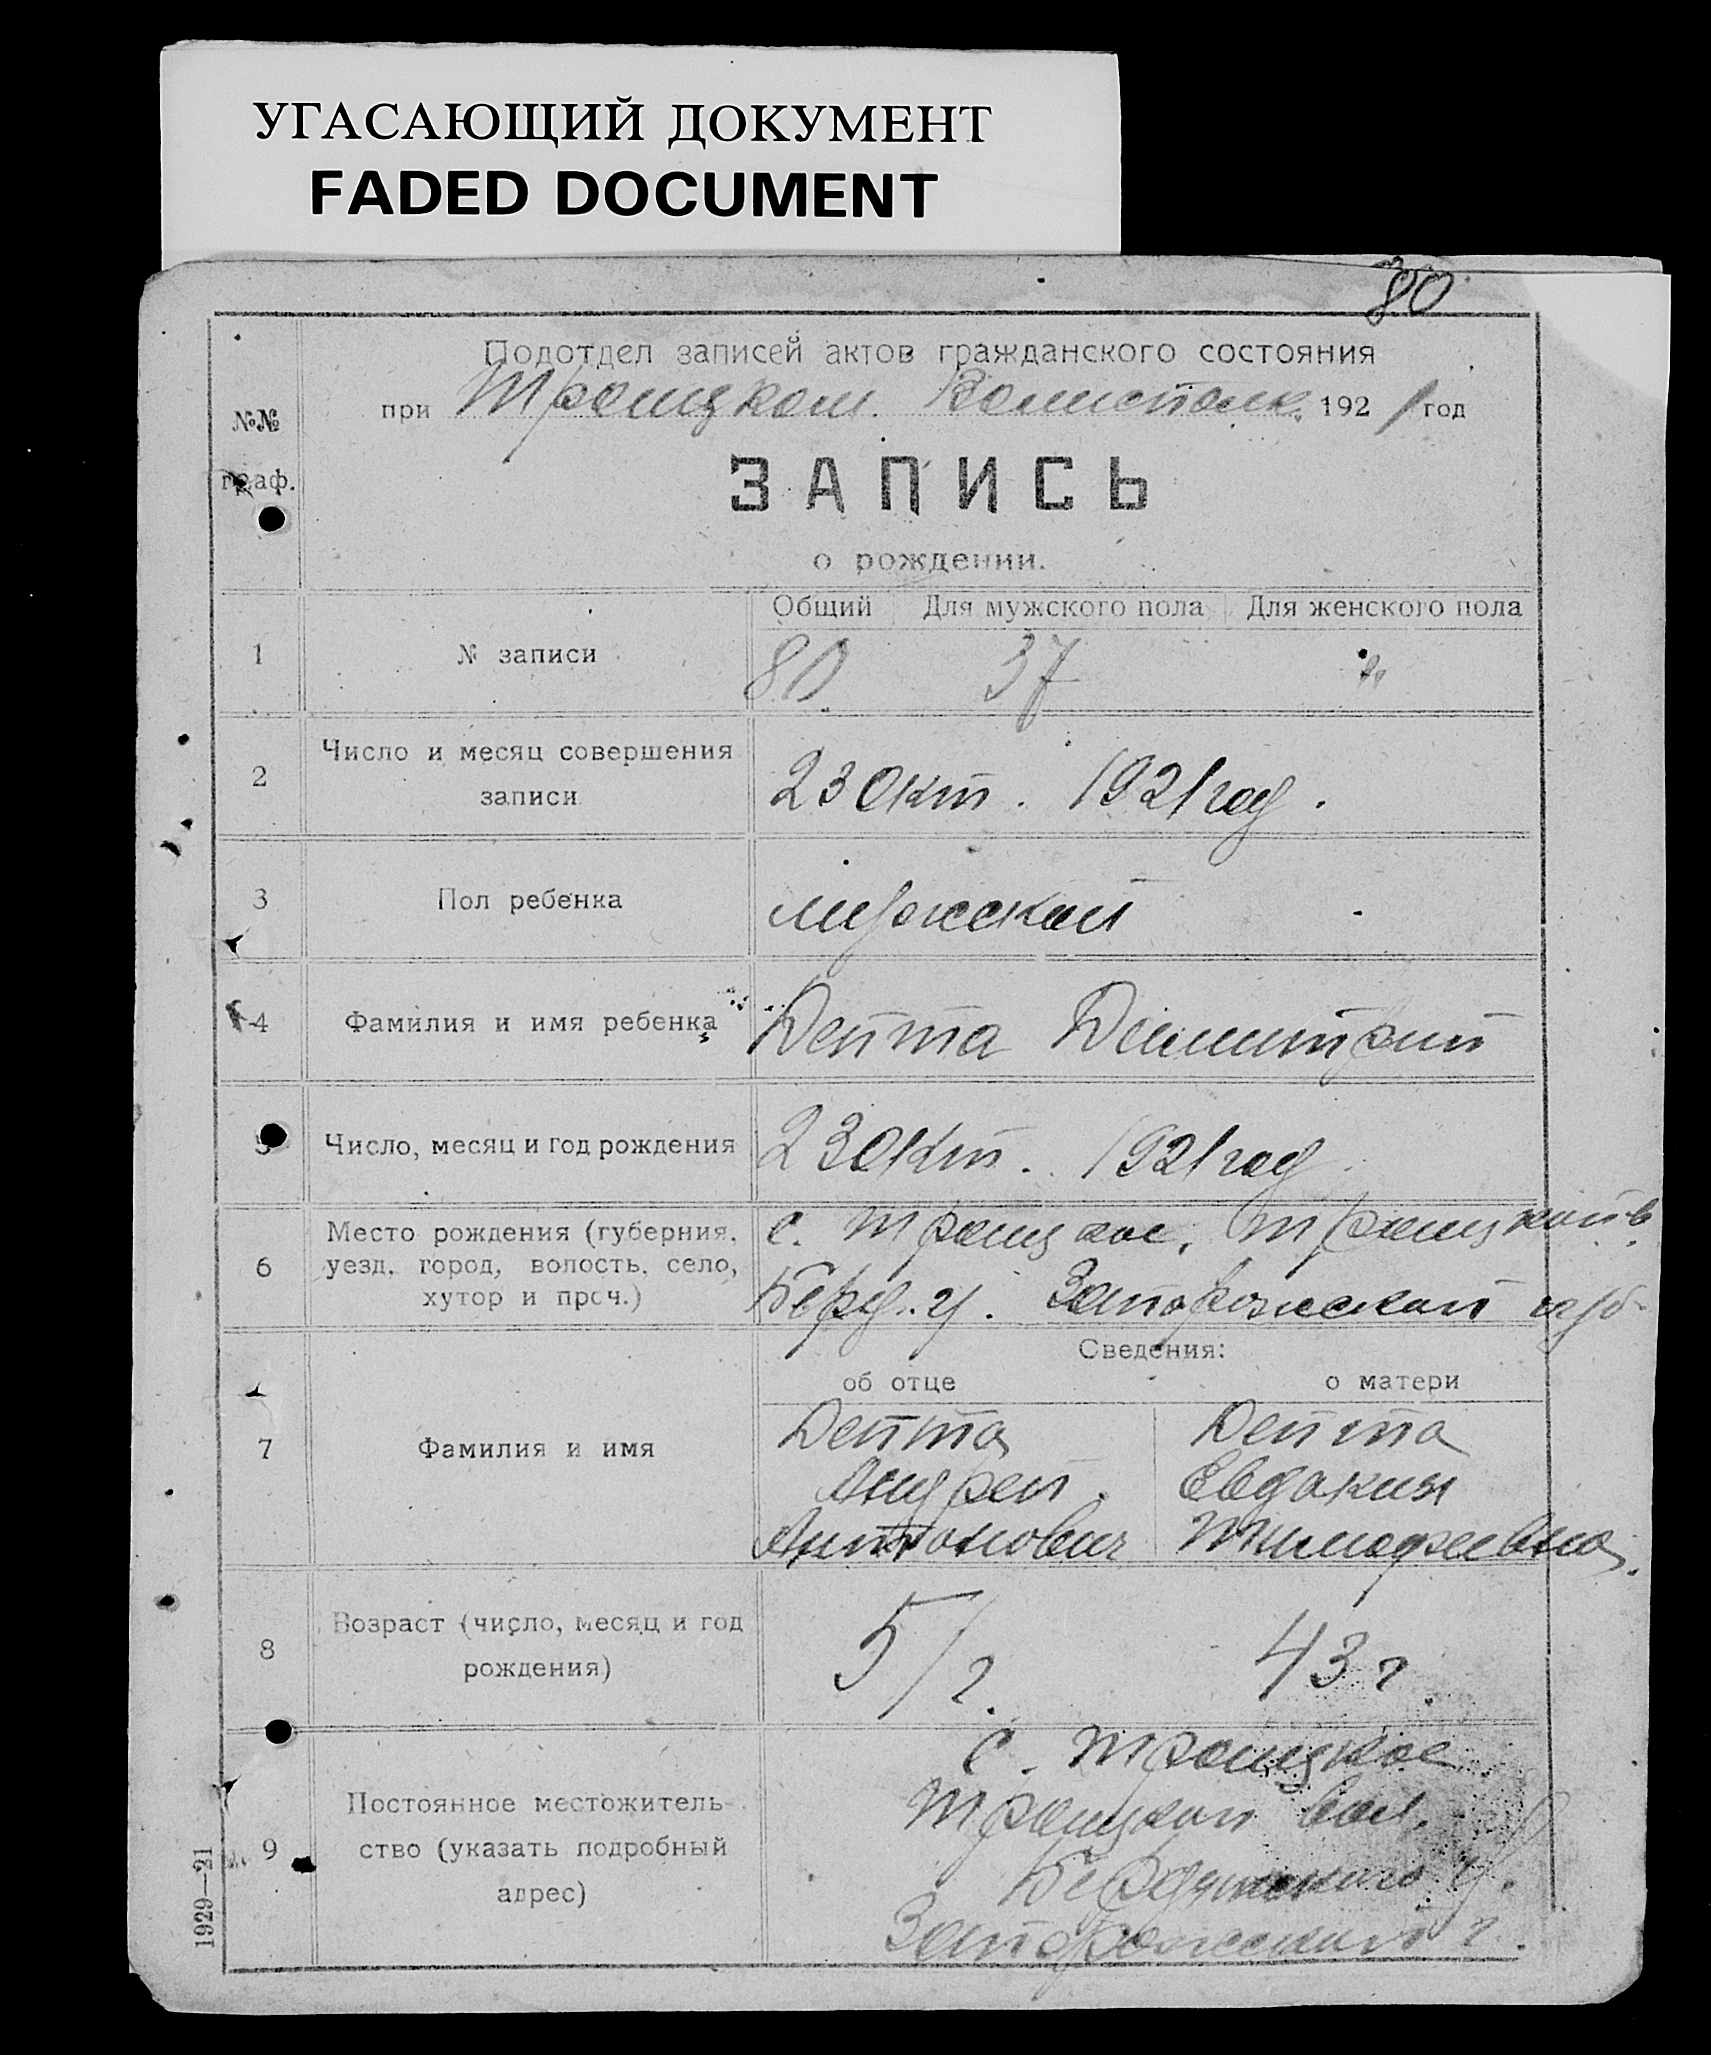 УГАСАЮЩИЙ ДОКУМЕНТ
FADED DOCUMENT
80
Подотдел записей актов гражданского состояния
при Троицком Волисполк. 1921 год
№№
граф.
ЗАПИСЬ
о рождении.
Общий Для мужского пола Для женского пола
1 № записи 80 37 "
2 Число и месяц совершения
записи
23 Окт. 1921 год.
3 Пол ребенка мужской
4 Фамилия и имя ребенка Депта Димитрий
5 Число, месяц и год рождения 23 Окт. 1921 год
6 Место рождения (губерния,
уезд, город, волость, село,
хутор и проч.)
с. Троицкое, Троицкой в.
Берд. у. Запорожской губ.
Сведения:
об отце о матери
7 Фамилия и имя
Депта Депта
Андрей Евдокия
Антонович Тимофеевна
8 Возраст (число, месяц и год
рождения)
51 г. 43 г.
9 Постоянное местожитель-
ство (указать подробный
адрес)
с. Троицкое
Троицкой вол.
Бердянского у.
Запорожской г.
1929—21